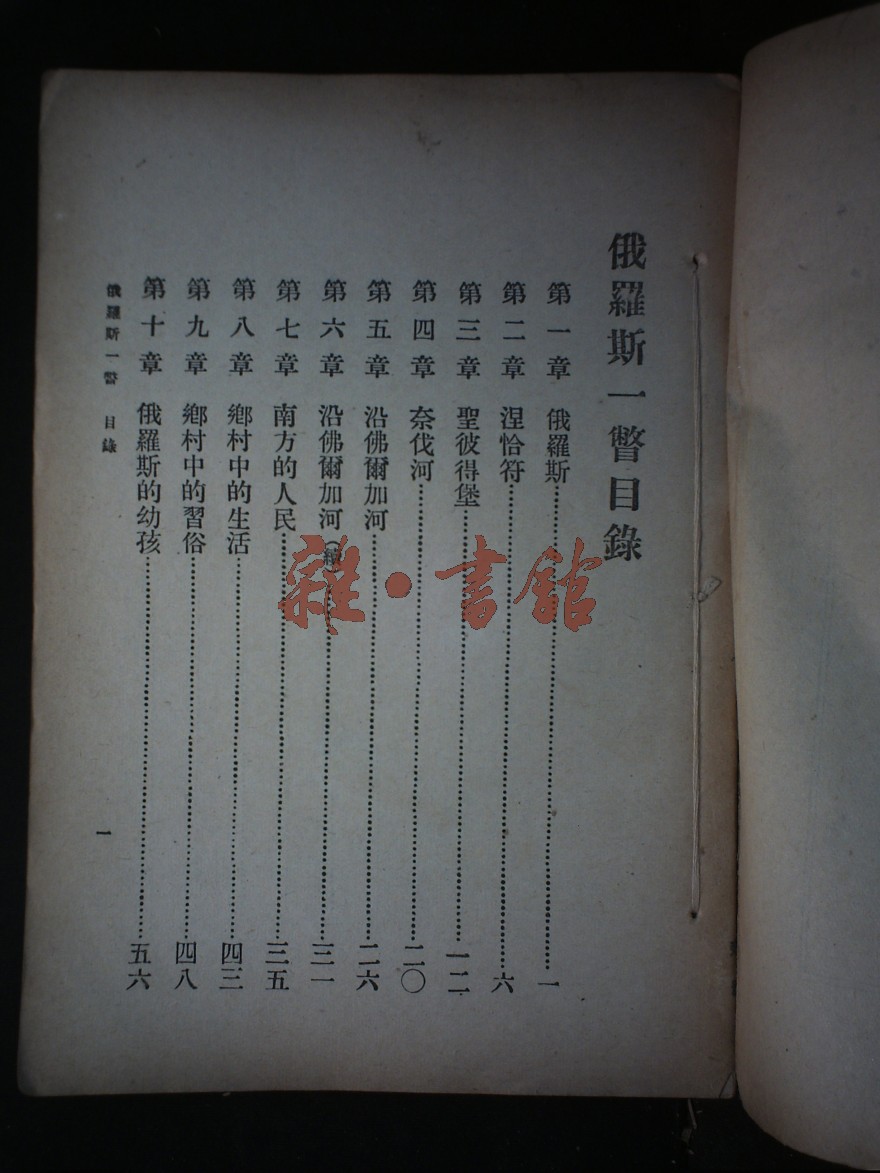 俄羅斯一瞥目錄
第一章 俄羅斯……一
第二章 涅恰符……六
第三章 聖彼得堡……一二
第四章 奈伐河……二〇
第五章 沿佛爾加河……二六
第六章 沿佛爾加河(續)……三一
第七章 南方的人民……三五
第八章 鄉村中的生活……四三
第九章 鄉村中的習俗……四八
第十章 俄羅斯的幼孩……五六
俄羅斯一瞥 目錄
一
雜·書館